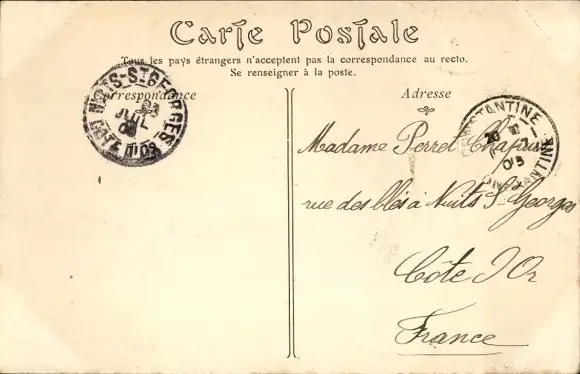 Carte Postale
Tous les pays étrangers n'acceptent pas la correspondance au recto.
Se renseigner à la poste.
Correspondance
Adresse
NUITS-ST GEORGES
JUIL
COTE D'OR
CONSTANTINE
CONSTANTINE
Madame Perret Chapuis
rue des blés à Nuits St Georges
Côte d'Or
France